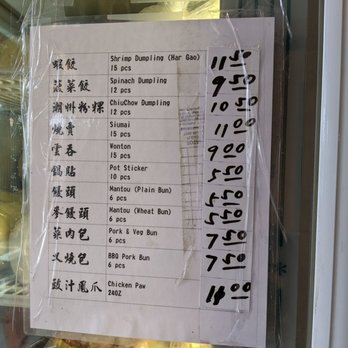 蝦餃 Shrimp Dumpling (Har Gao) 11.50
15 pcs
菠菜餃 Spinach Dumpling 9.50
12 pcs
潮州粉粿 ChiuChow Dumpling 10.50
12 pcs
燒賣 Siumai 11.00
15 pcs
雲吞 Wonton 9.00
15 pcs
鍋貼 Pot Sticker 5.50
10 pcs
饅頭 Mantou (Plain Bun) 5.50
6 pcs
麥饅頭 Mantou (Wheat Bun) 5.50
6 pcs
菜肉包 Pork & Veg Bun 7.50
6 pcs
叉燒包 BBQ Pork Bun 7.50
6 pcs
豉汁鳳爪 Chicken Paw 14.00
24OZ